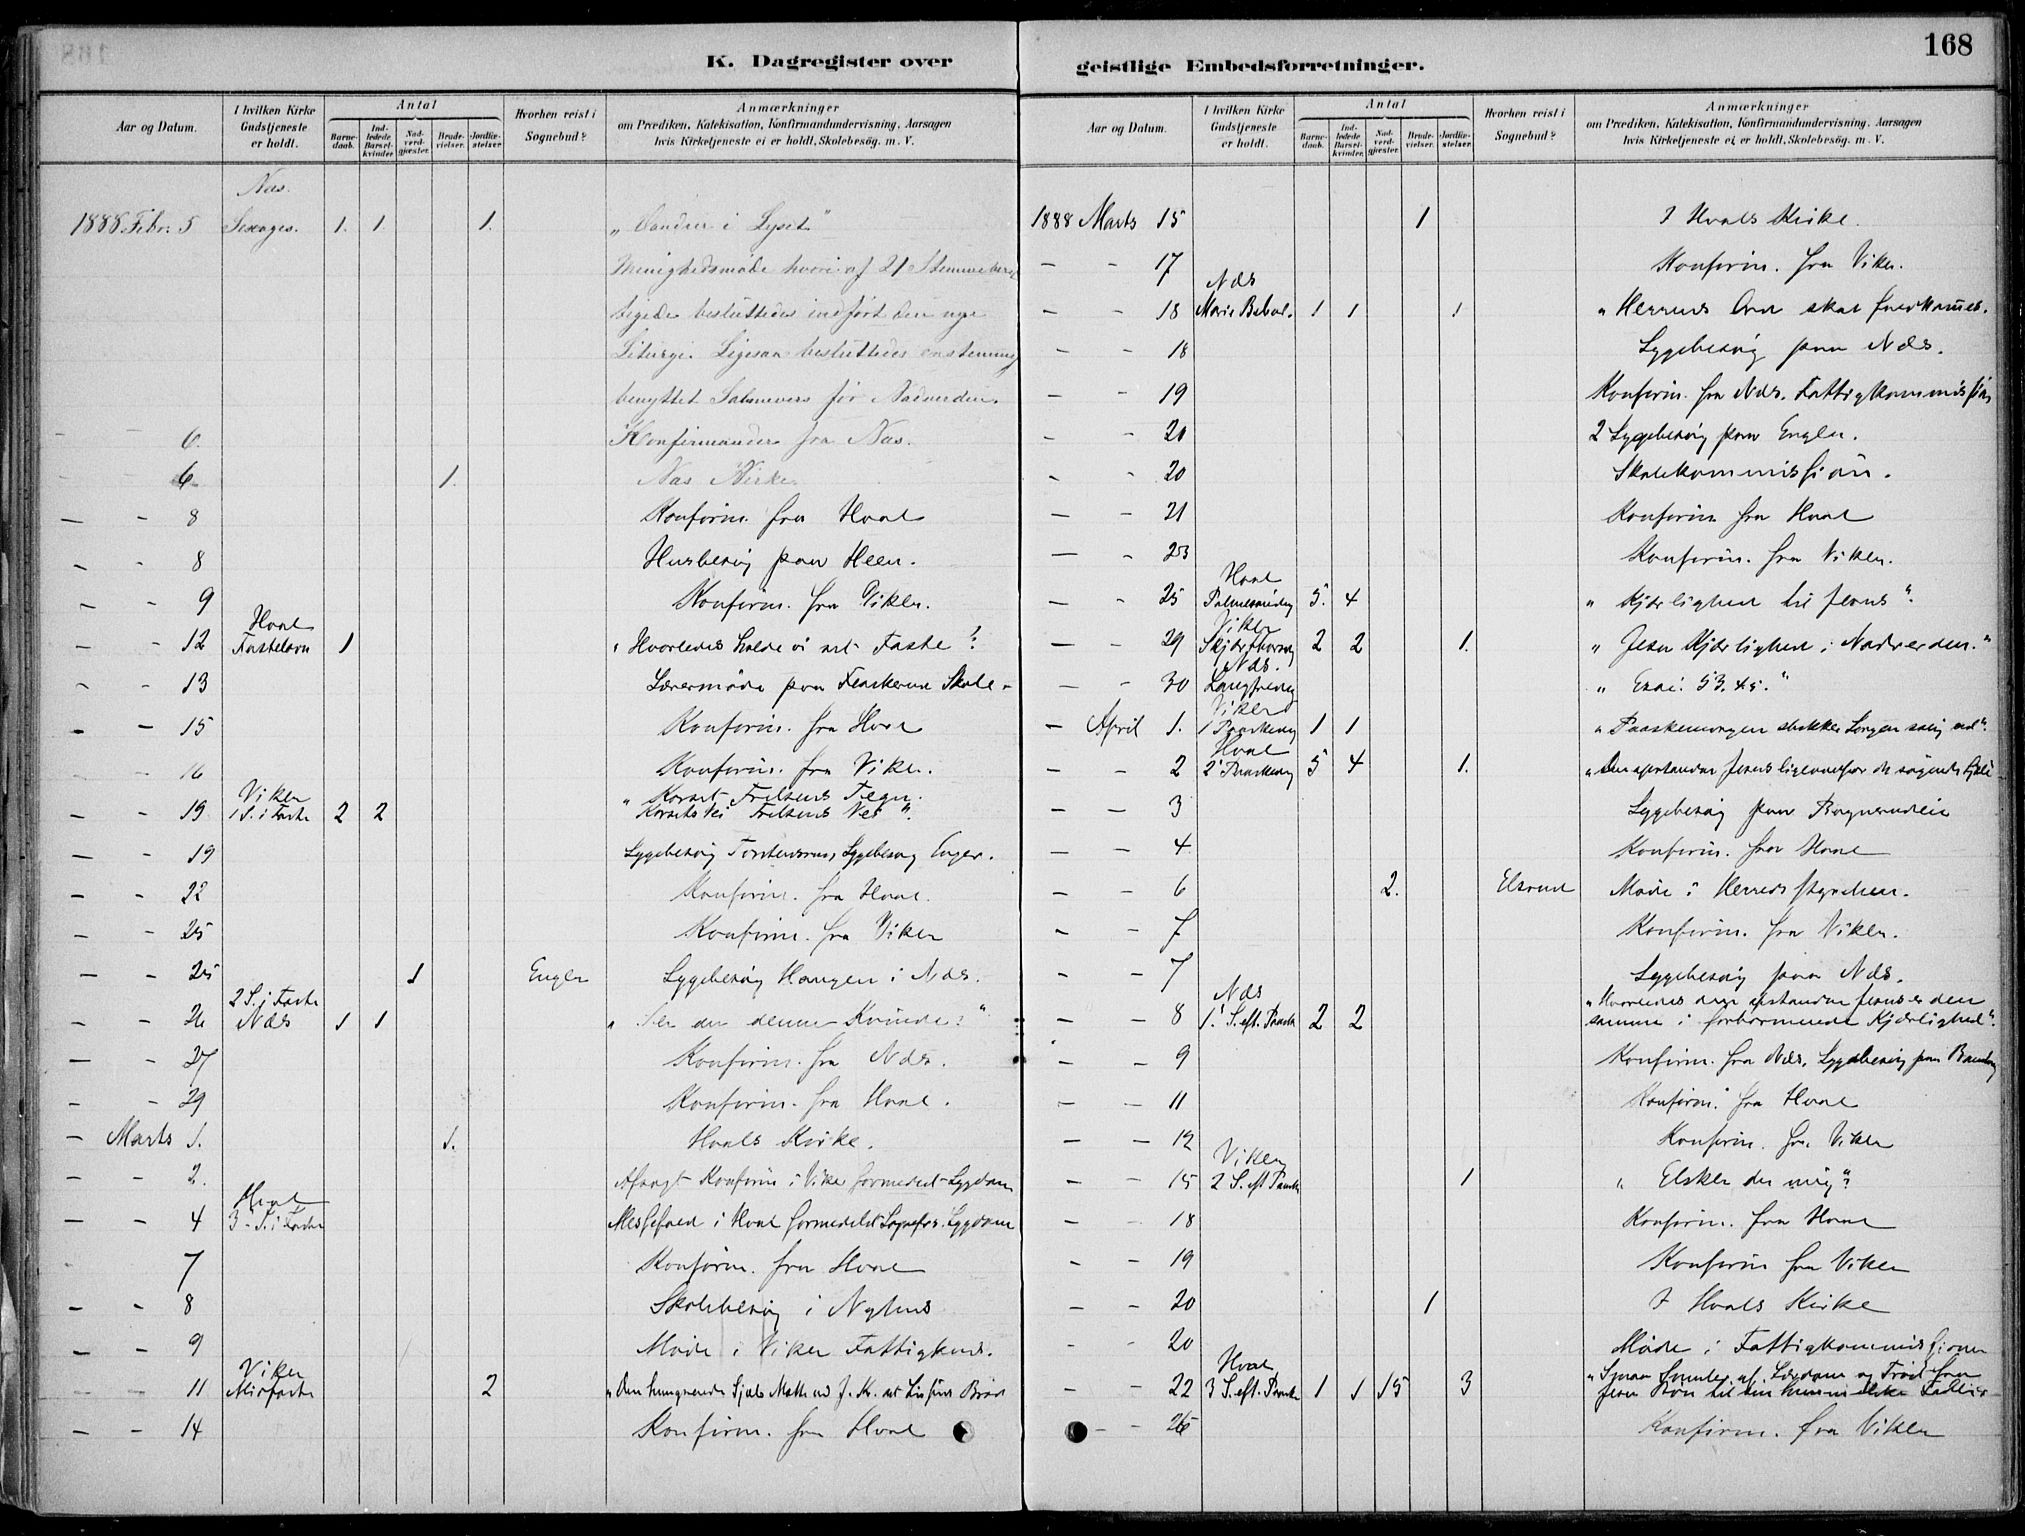 168
K. Dagregister over
geistlige Embedsforretninger.
Aar og Datum.
I hvilken Kirke Gudstjeneste er holdt.
Antal
Barnedaab.
Indledede Barselkvinder.
Nadverdgjæster.
Brudevielser.
Jordfæstelser
Hvorhen reist i Sognebud?
Anmærkninger
om Prædiken, Katekisation, Konfirmandundervisning, Aarsagen
hvis Kirketjeneste ei er holdt, Skolebesög. m. V.
Næs.
1888 Febr. 5 Sexages. 1. 1. 1. "Vandrer i Lyset"
Menighedsmøde hvori af 21 Stemmebere
tigede besluttedes indført den nye
Liturgi. Ligesaa besluttedes enstemmig
benyttet Salmevers før Nadverden.
6 Konfirmander fra Næs.
6 1. Næs Kirke.
— - 8 Konfirm. fra Hval
- - 8 Husbesøg paa Heen.
- - 9 Konfirm. fra Viker.
Hval
- - 12 Fastelavn 1 "Hvorledes holde vi ret Faste?
- - 13 Lærermøde paa Skole
- - 15 Konfirm. fra Hval
- - 16 Konfirm. fra Viker.
Viker "Korset Frelsens Tegn.
- - 19 1 S. i Faste 2 2 Korsets Vei Frelsens Vei".
— - 19 Sygebesøg Sygebesøg Enger.
- - 22 Konfirm. fra Hval.
- - 25 Konfirm. fra Viker
— - 25 1 Enger Sygebesøg Haugen i Næs.
2 S. i Faste
- - 26 Næs 1 1 "Ser du denne Kvinde?"
— - 27 Konfirm. fra Næs.
- - 29 Konfirm. fra Hval.
— Marts 1. 1. Hvals Kirke.
- - 2. Afsagt Konfirm i Viker formedelst Sygdom
Hval
— - 4 3 S. i Faste Messefald i Hval formedelst Sognepr. Sygdom
7 Konfirm. fra Hval
- - 8 Skolebesøg i Nyhus
- - 9 Møde i Viker Fattigkms.
Viker
- - 11 Midfaste 2 "Den hungrende Sjæls Mætte ved J. Kr. det Livsens Brød
— - 14 Konfirm. fra Hval
Aar og Datum.
I hvilken Kirke Gudstjeneste er holdt.
Antal
Barnedaab.
Indledede Barselkvinder.
Nadverdgjæster.
Brudevielser.
Jordfæstelser
Hvorhen reist i Sognebud?
Anmærkninger
om Prædiken, Katekisation, Konfirmandundervisning, Aarsagen
hvis Kirketjeneste ei er holdt, Skolebesög. m. V.
1888 Marts 15 1 I Hvals Kirke.
— - 17 Konfirm. fra Viker.
Næs
- - 18 Marie Bebud. 1 1 1 "Herrens Ord skal fuldkommes.
- - 18 Sygebesøg paa Næs.
- - 19 Konfirm. fra Næs. Fattigkommission
- - 20 2 Sygebesøg paa Enger.
- - 20 Skolekommission.
— - 21 Konfirm fra Hval
— - 23 Konfirm. fra Viker.
Hval
— - 25 Palmesøndag 5. 4 "Kjærlighed til Jesus".
Viker
— - 29 Skjærthorsdag 2 2 1. "Jesu Kjærlighed i Nadverden."
Næs.
— - 30 Langfredag "Esai. 53. 4.5."
Viker
- April 1. 1 Paaskedag 1 1 "Paaskemorgen slukker Sorgen
Hval
- - 2 2 Paaskedag 5 4 1. "Den opstandne Jesus ligeoverfor de søgende Sjæle
— - 3 Sygebesøg paa
— - 4 Konfirm. fra Hval
- - 6 2. Elsrud Møde i Herredsstyrelsen.
- - 7 Konfirm. fra Viker.
- - 7 Sygebesøg paa Næs.
Næs "Hvorledes den opstandne Jesus er den
— - 8 1. S. eft. Paaske 2 2 samme i forbarmende Kjærlighed".
— - 9 Konfirm. fra Næs. Sygebesøg paa
— - 11 Konfirm. fra Hval
— - 12 Konfirm. fra Viker
Viker
- - 15 2 S. eft Paaske 1 "Elsker du mig?
- - 18 Konfirm. fra Hval
- - 19 Konfirm fra Viker
- - 20 1 I Hvals Kirke
- - 20 Møde i Fattigkommissionen
Hval "Smaa Smuler af Lærdom og Trøst fra
- - 22 3 S. eft. Paaske 1 1 15 3 Jesu Bøn til den himmelske Fader
- - 26 Konfirm. fra Viker